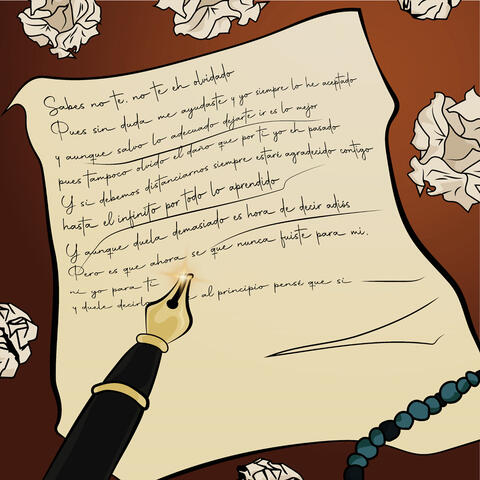 Sabes no te, no te eh olvidado
Pues sin duda me ayudaste y yo siempre lo he aceptado
y aunque salvo lo adecuado dejarte ir es lo mejor
pues tampoco olvido el daño que por ti yo eh pasado
Y si debemos distanciarnos siempre estaré agradecido contigo
hasta el infinito por todo lo aprendido
Y aunque duela demasiado es hora de decir adiós
Pero es que ahora se que nunca fuiste para mi.
ni yo para ti
y duele decirlo al principio pensé que si